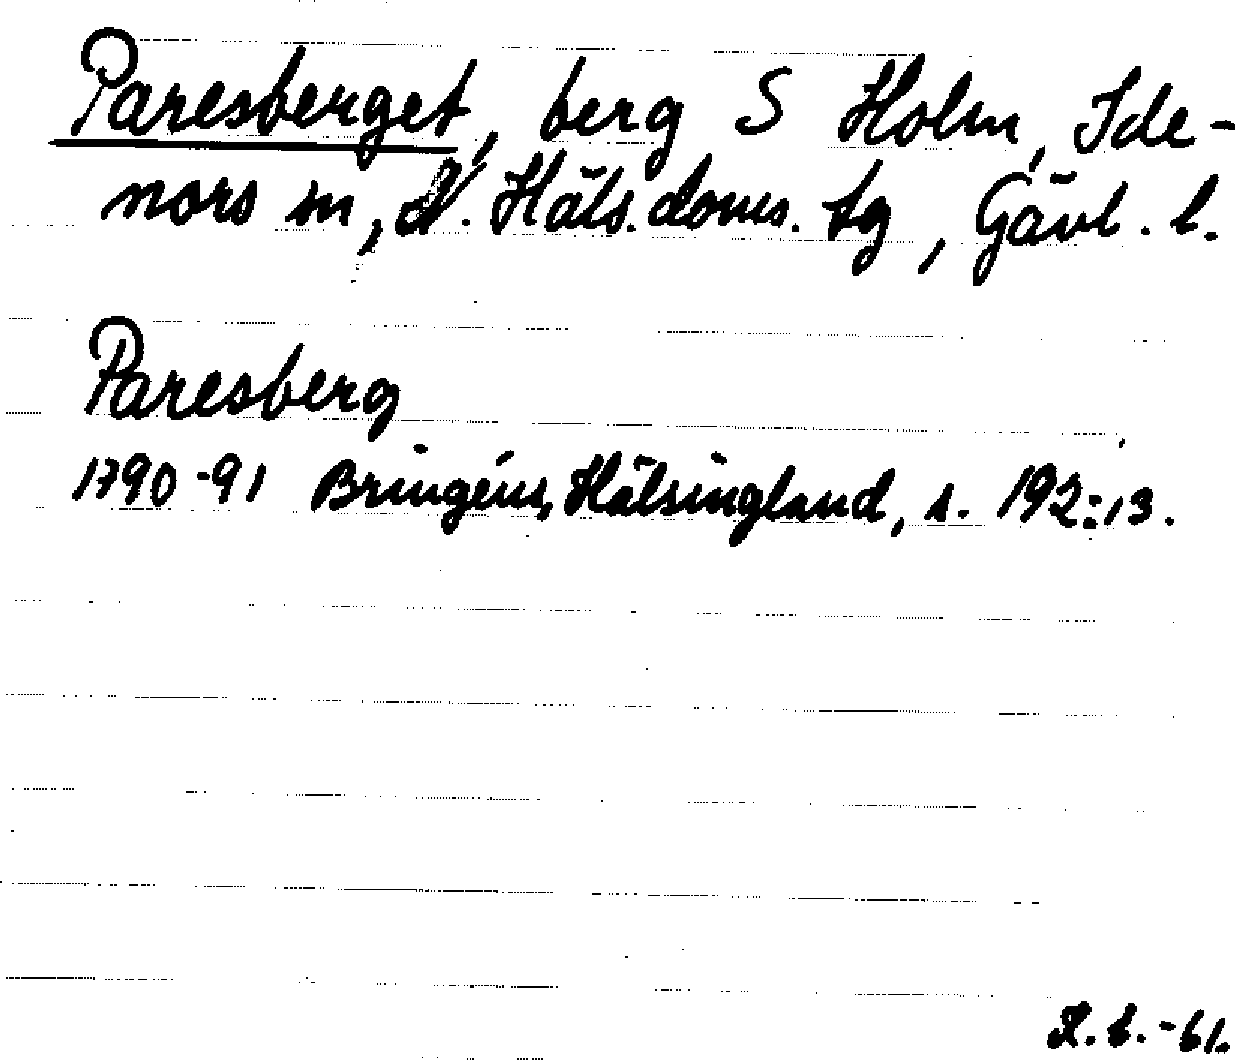 Paresberget, berg S Holm, Ide-
nors sn, N. Häls. doms. tg, Gävl. l.
Paresberg
1790-91 Bringéus, Hälsingland, s. 192:13.
L.-61.